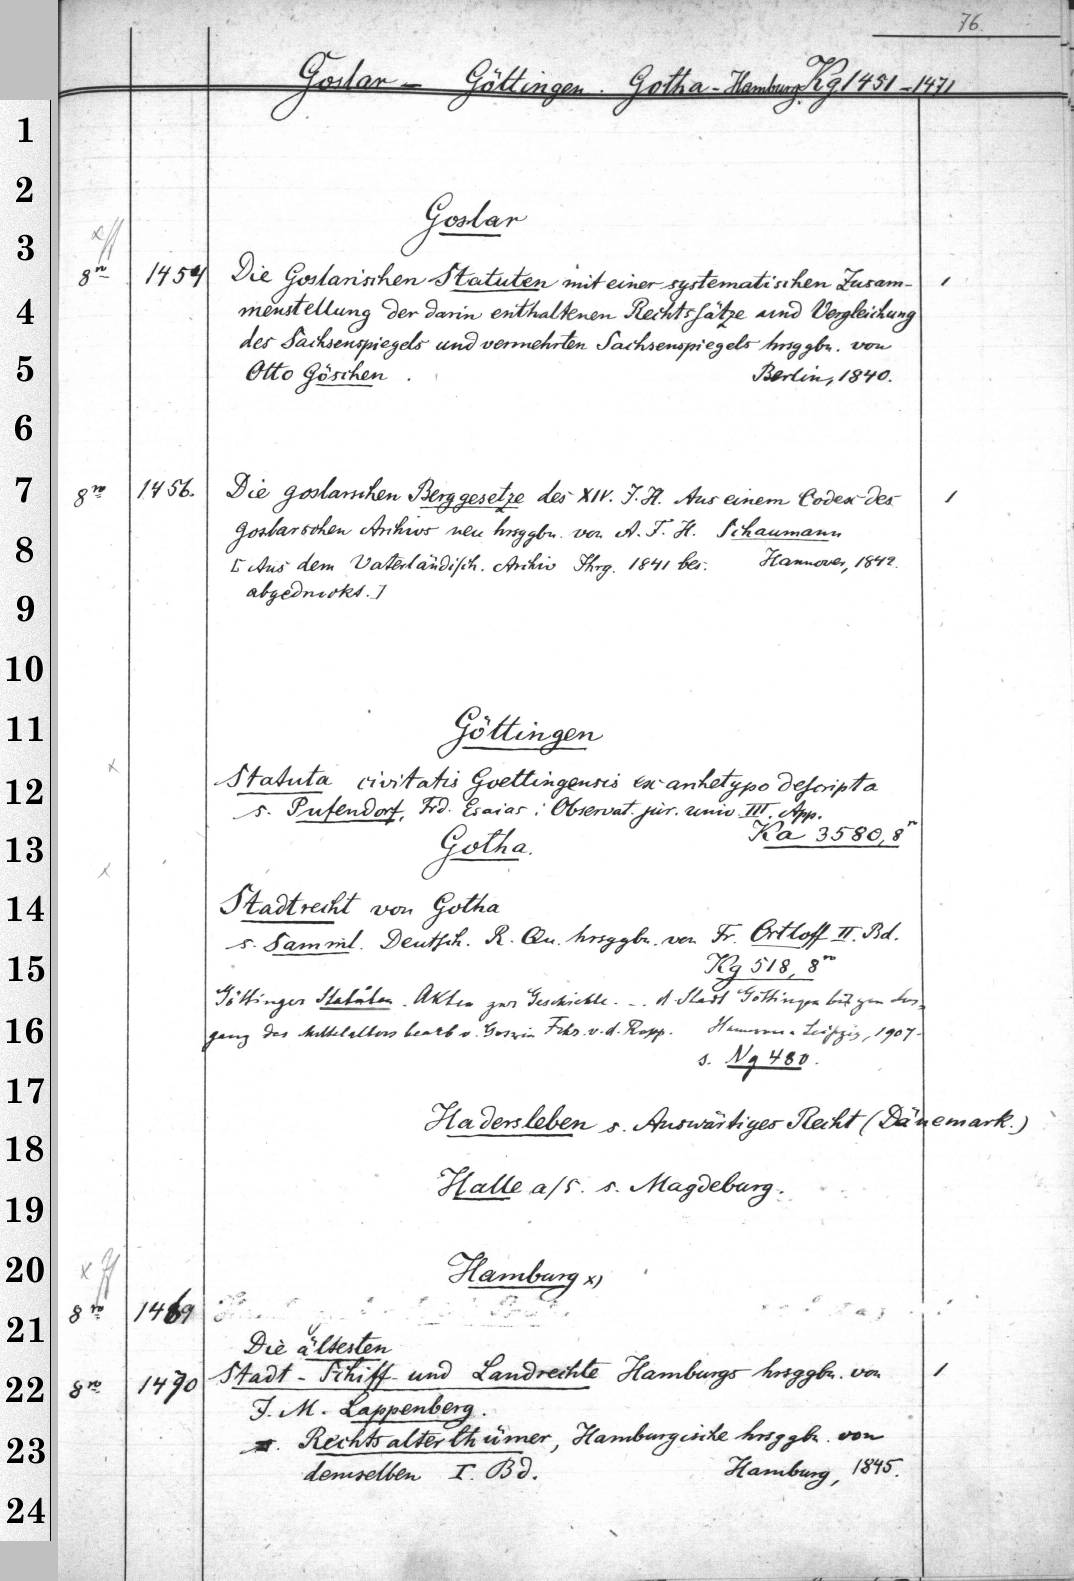 76.
Goslar – Göttingen. Gotha - Hamburg. Kg 1451 – 1471
1
2
Goslar
3
8ᵛᵒ 1454 Die Goslarischen Statuten mit einer systematischen Zusam- 1
4 menstellung der darin enthaltenen Rechtssätze und Vergleichung
des Sachsenspiegels und vermehrten Sachsenspiegels hrsggbn. von
5 Otto Göschen. Berlin, 1840.
6
7 8ᵛᵒ 1456. Die goslarschen Berggesetze des XIV. J. H. Aus einem Codex des 1
8 goslarschen Archivs neu hrsggbn. von A. F. H. Schaumann
[Aus dem Vaterländisch. Archiv Jhrg. 1841 bes. Hannover, 1842.
9 abgedruckt.]
10
11 Göttingen
x
12 Statuta civitatis Goettingensis ex archetypo descripta
s. Pufendorf, Frd. Esaias: Observat. jur. univ III. App.
Ka 3580, 8ᵛᵒ
13 Gotha.
x
14 Stadtrecht von Gotha
s. Samml. Deutsch. R. Qu. hrsggbn. von Fr. Ortloff II. Bd.
15 Kg 518, 8ᵛᵒ
Göttinger Statuten. Akten zur Geschichte ... d. Stadt Göttingen bis zum Aus-
16 gang des Mittelalters bearb v. Goswin Frhr. v. d. Ropp. Hannover u. Leipzig, 1907.
s. Ng 480.
17
Hadersleben s. Auswärtiges Recht (Dänemark.)
18
Halle a/S. s. Magdeburg.
19
20 x Hamburg x)
8ᵛᵒ 1469
21
Die ältesten
22 8ᵛᵒ 1470 Stadt - Schiff - und Landrechte Hamburgs hrsggbn. von 1
J. M. Lappenberg.
23 Rechtsalterthümer, Hamburgische hrsggbn. von
demselben I. Bd. Hamburg, 1845.
24